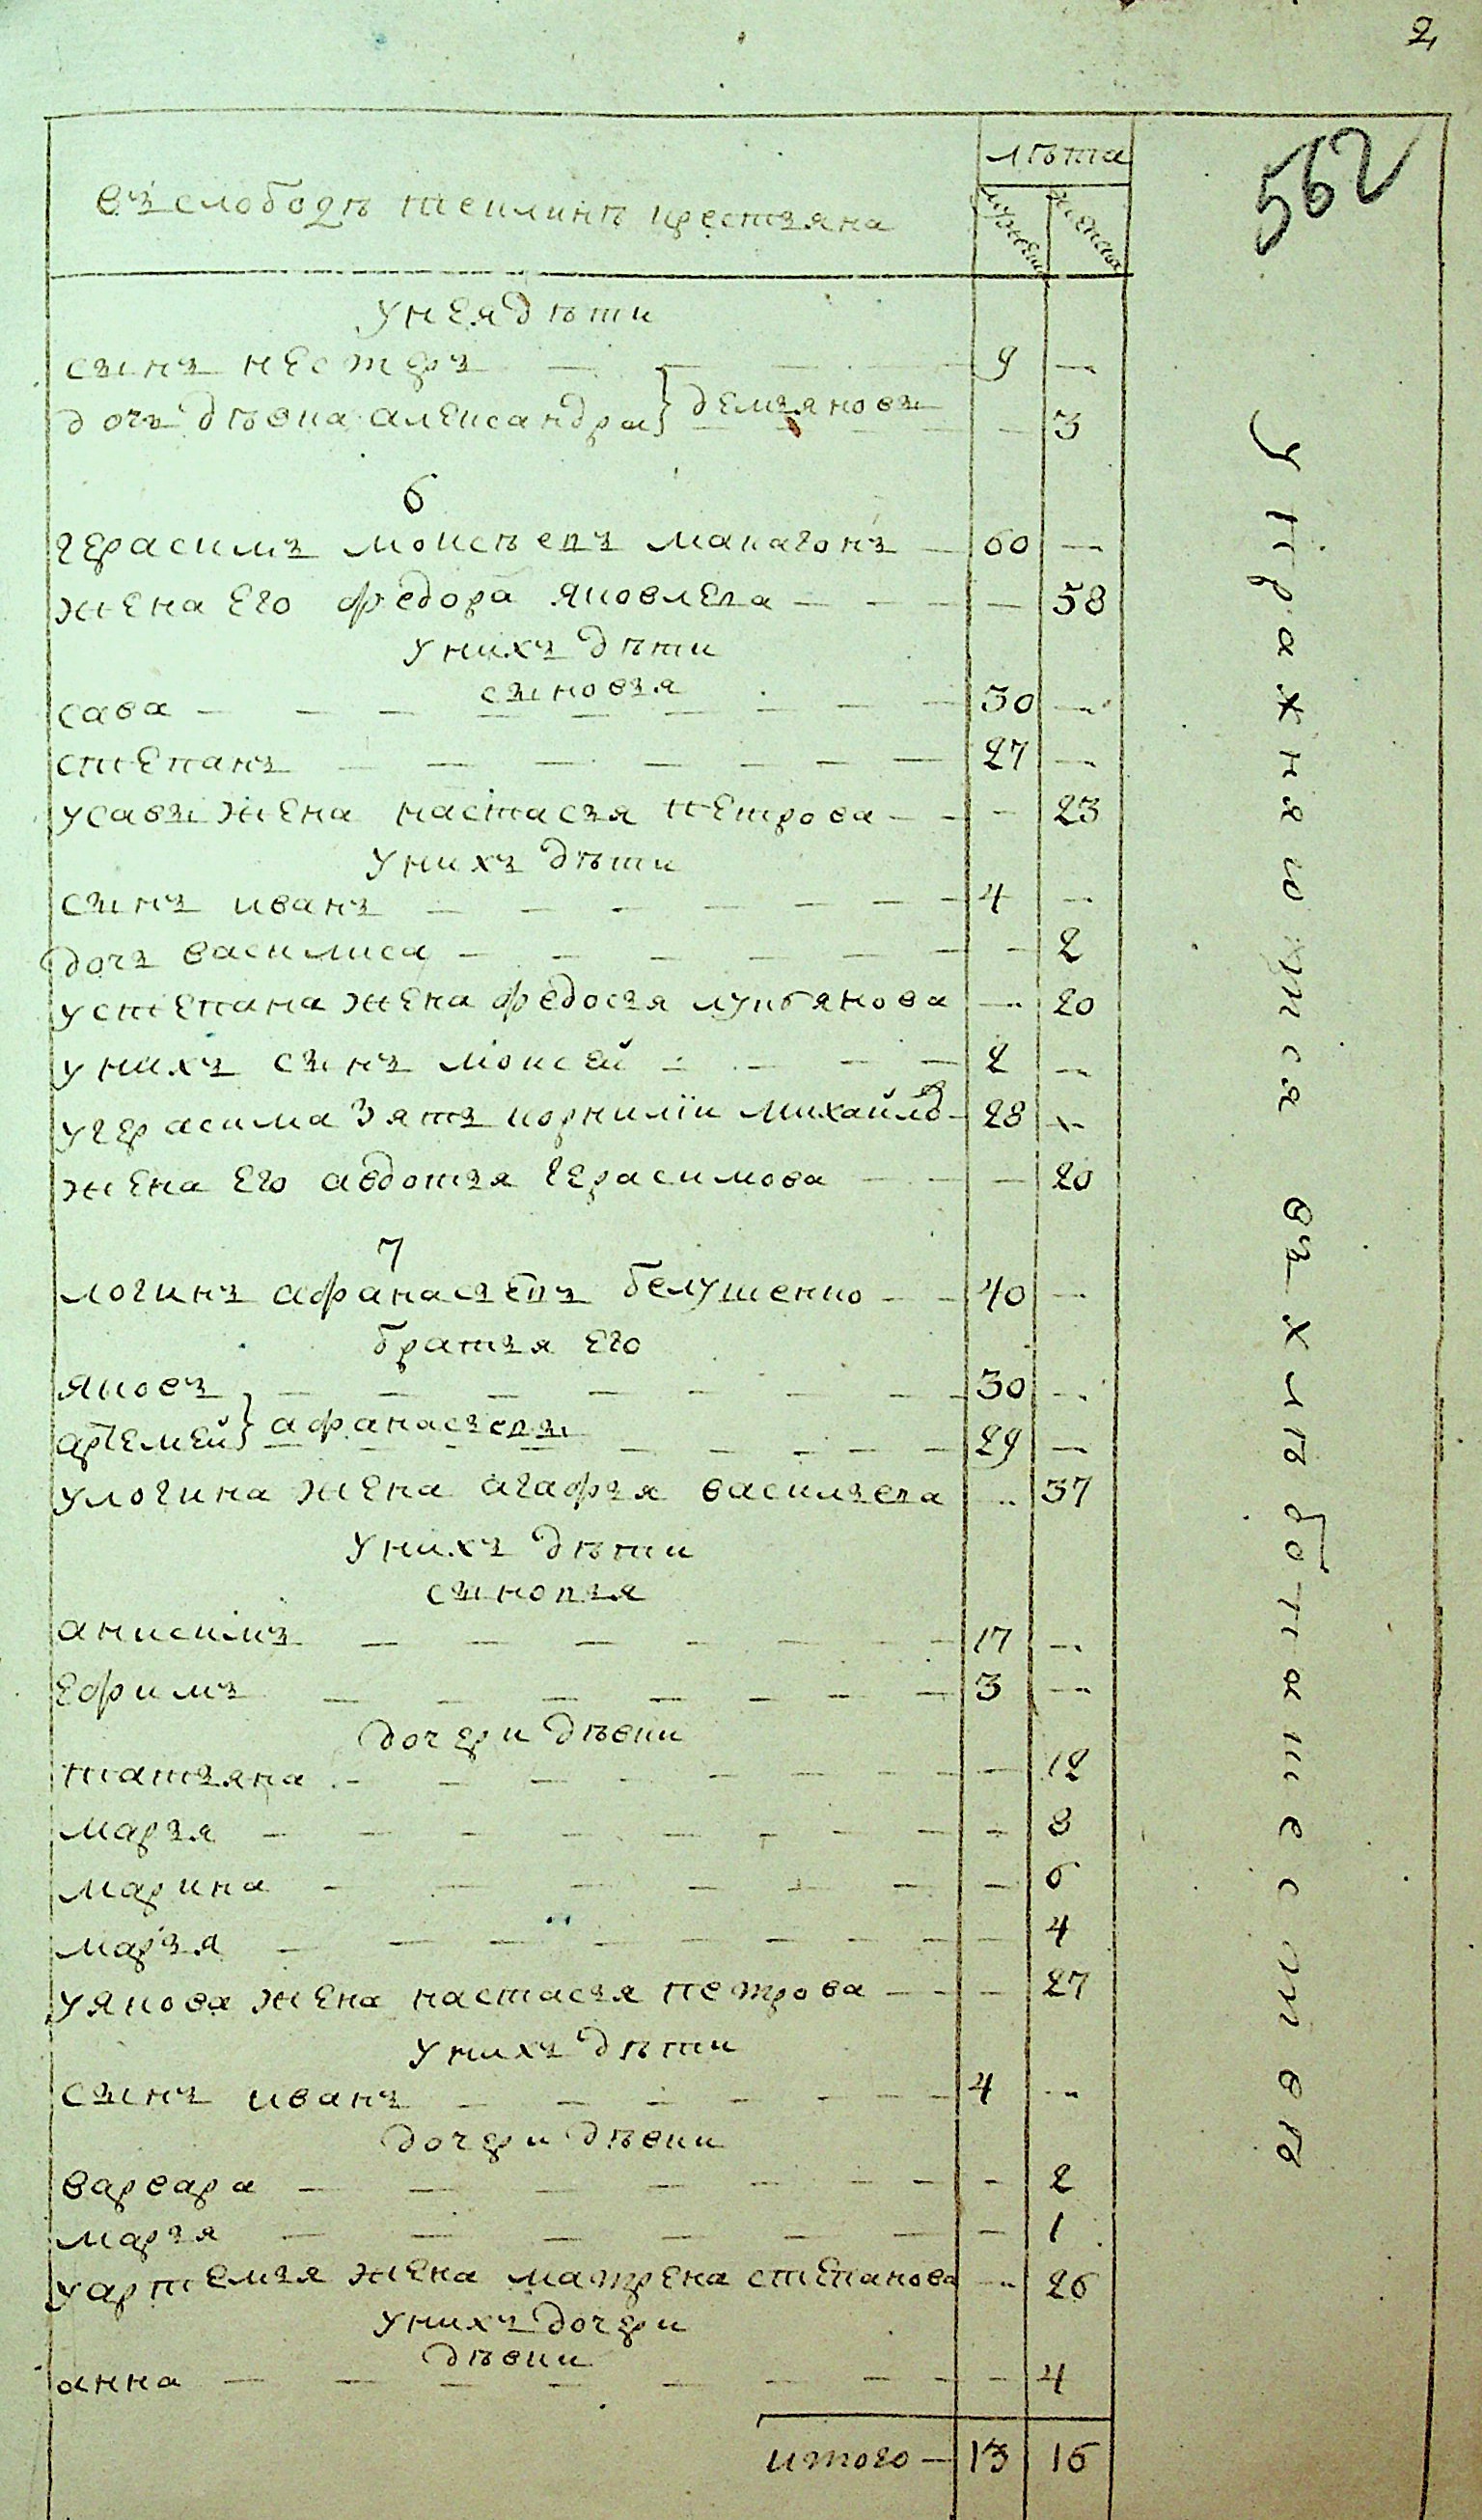 2
562
лѣта
въ слободѣ теплинѣ крестьяна
мужеска
женска
у нея дѣти
сынъ нестеръ — 9 —
дочъ дѣвка александра } демьяновы — 3
6
герасимъ моисѣевъ макагонъ — 60 —
жена его федора яковлева — — 58
у нихъ дѣти
сыновья
сава — 30 —
степанъ — 27 —
у савы жена настасья петрова — — 23
у нихъ дѣти
сынъ иванъ — 4 —
дочь василиса — — 2
у степана жена федосья лукьянова — 20
у нихъ сынъ моисей — 2 —
у герасима зять корнилiй михайловъ — 28 —
жена его авдотья герасимова — — 20
7
логинъ афанасьевъ белушенко — 40 —
братья его
яковъ — 30 —
артемей } афанасьевы — 29 —
у логина жена агафья васильева — 37
у нихъ дѣти
сыновья
анисимъ — 17 —
ефимъ — 3 —
дочери дѣвки
татьяна — — 12
марья — — 8
марина — — 6
марья — — 4
у якова жена настасья петрова — — 27
у нихъ дѣти
сынъ иванъ — 4 —
дочери дѣвки
варвара — — 2
марья — — 1
у артемья жена матрена степанова — 26
у нихъ дочери
дѣвки
анна — — 4
итого — 13 16
упражняются въ хлѣбопашествѣ